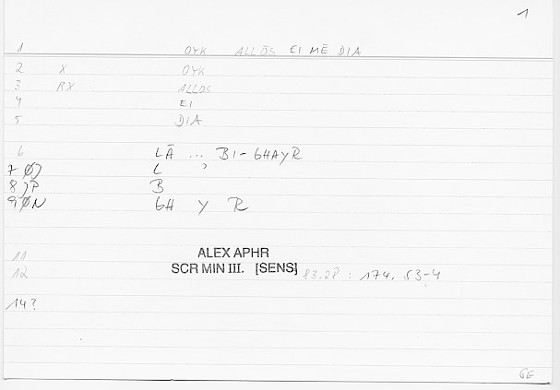 1
1 OYK ALLŌS EI MĒ DIA
2 X OYK
3 RX ALLOS
4 EI
5 DIA
6 LĀ ... BI-GHAYR
7 Ø) L '
8 )P B
9 ØN GH Y R
ALEX APHR
11
SCR MIN III. [SENS]
12 83.2P : 174, 53-4
14?
GE